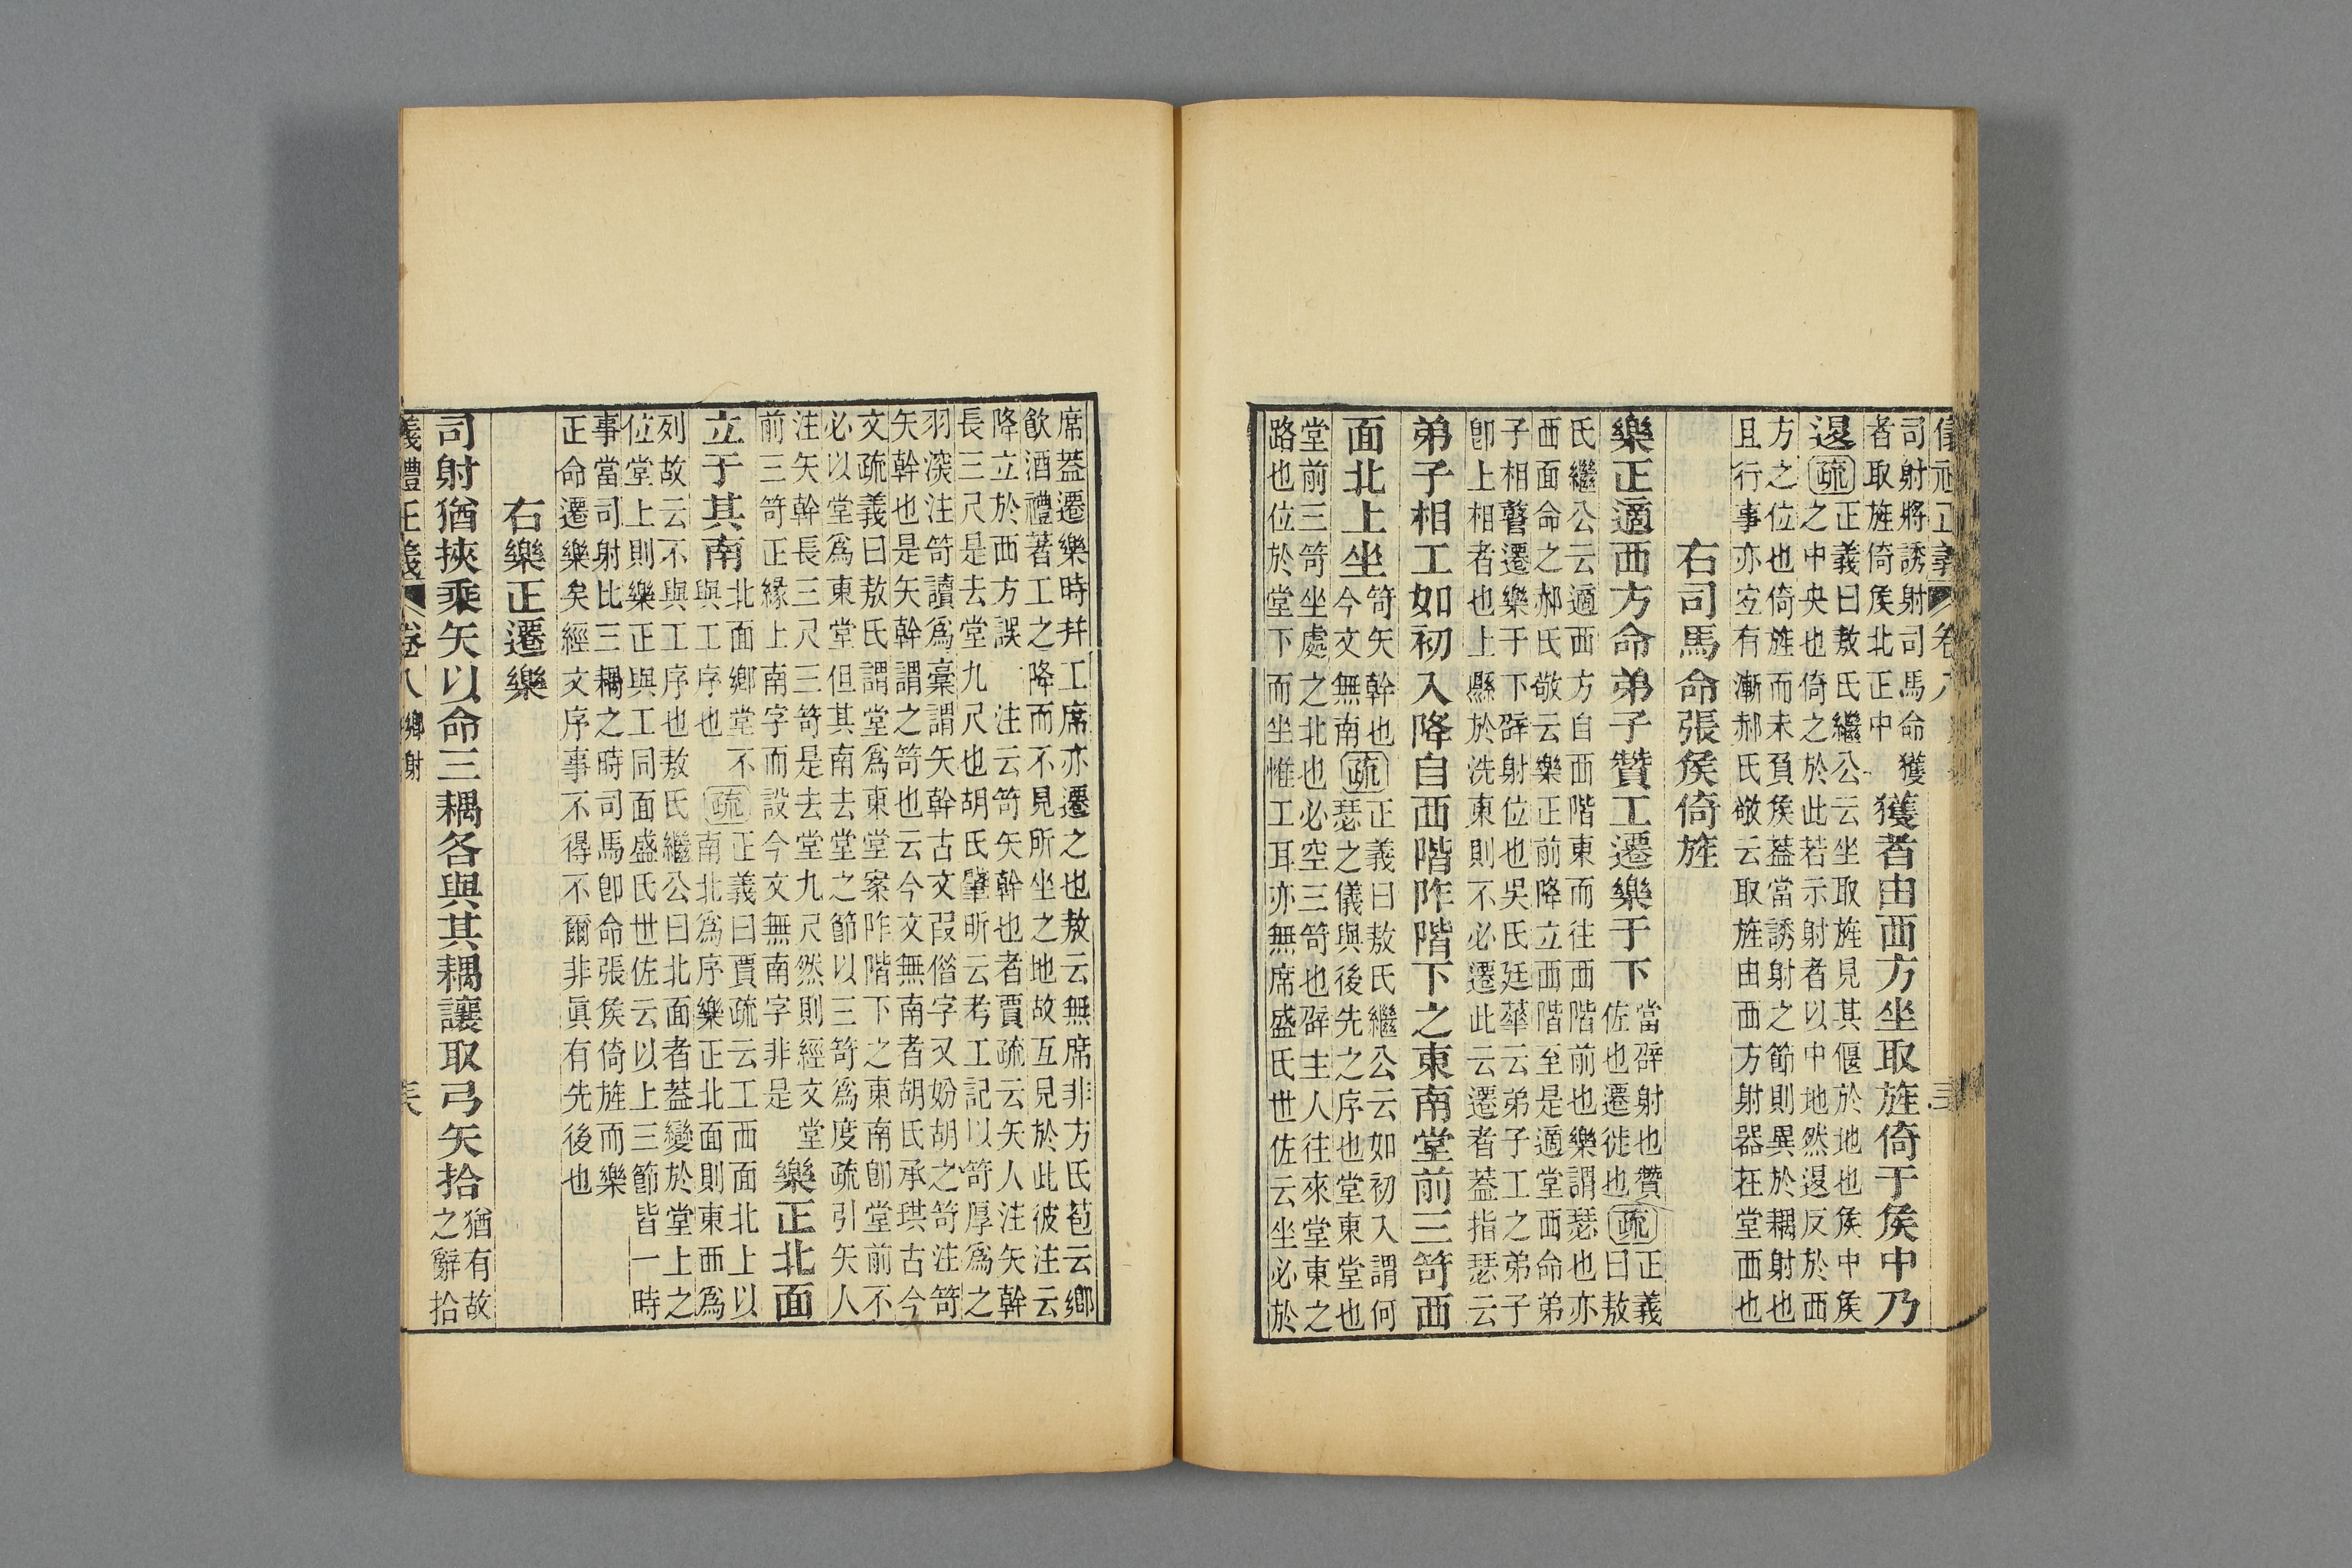 儀禮正義 卷八
司射將誘射司馬命獲
者取旌倚矦北正中
獲者由西方坐取旌倚于矦中乃
退疏
正義曰敖氏繼公云坐取旌見其偃於地也矦中矦
之中央也倚之於此若示射者以中地然退反於西
方之位也倚旌而未負矦蓋當誘射之節則異於耦射也
且行事亦宐有漸郝氏敬云取旌由西方射器在堂西也
右司馬命張矦倚旌
樂正適西方命弟子贊工遷樂于下
當辟射也贊
佐也遷徙也
疏
正義
曰敖
氏繼公云適西方自西階東而往西階前也樂謂瑟也亦
西面命之郝氏敬云樂正前降立西階至是適堂西命弟
子相瞽遷樂于下辟射位也吳氏廷華云弟子工之弟子
卽上相者也上縣於洗東則不必遷此云遷者蓋指瑟云
弟子相工如初入降自西階阼階下之東南堂前三笴西
面北上坐
笴矢幹也
今文無南
疏
正義曰敖氏繼公云如初入謂何
瑟之儀與後先之序也堂東堂也
堂前三笴坐處之北也必空三笴也辟主人往來堂東之
路也位於堂下而坐惟工耳亦無席盛氏世佐云坐必於
席蓋遷樂時幷工席亦遷之也敖云無席非方氏苞云鄉
飮酒禮著工之降而不見所坐之地故互見於此彼注云
降立於西方誤 注云笴矢幹也者賈疏云矢人注矢幹
長三尺是去堂九尺也胡氏肇昕云考工記以笴厚爲之
羽深注笴讀爲稾謂矢幹古文叚借字又妢胡之笴注笴
矢幹也是矢幹謂之笴也云今文無南者胡氏承珙古今
文疏義曰敖氏謂堂爲東堂案阼階下之東南卽堂前不
必以堂爲東堂但其南去堂之節以三笴爲度疏引矢人
注矢幹長三尺三笴是去堂九尺然則經文堂
前三笴正緣上南字而設今文無南字非是
樂正北面
立于其南
北面鄉堂不
與工序也
疏
正義曰賈疏云工西面北上以
南北爲序樂正北面則東西爲
列故云不與工序也敖氏繼公曰北面者蓋變於堂上之
位堂上則樂正與工同面盛氏世佐云以上三節皆一時
事當司射比三耦之時司馬卽命張矦倚旌而樂
正命遷樂矣經文序事不得不爾非眞有先後也
右樂正遷樂
司射猶挾乘矢以命三耦各與其耦讓取弓矢拾
猶有故
之辭拾
義禮正義 卷八 鄉射